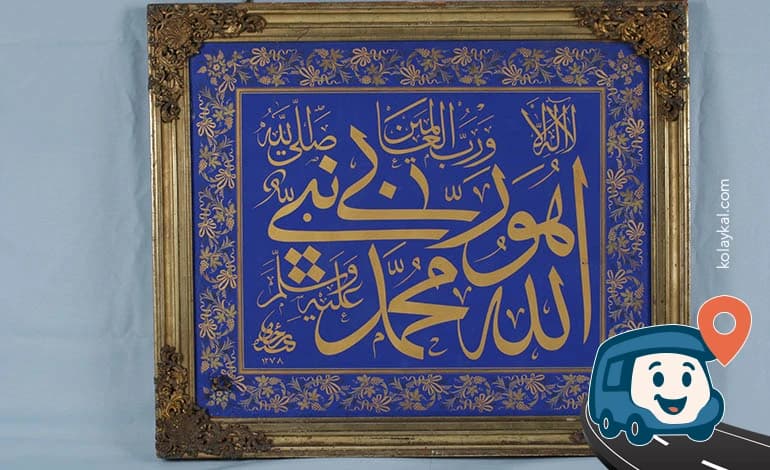 لا اله الا
ورب العالمين
صلى الله
هو ربي نبيي
الله محمد
عليه وسلم
١٢٧٨
kolaykal.com